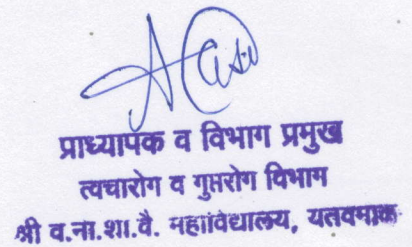 प्राध्यापक व विभाग प्रमुख
त्वचारोग व गुप्तरोग विभाग
श्री व.ना.शा.वै. महाविद्यालय, यतवमाळ